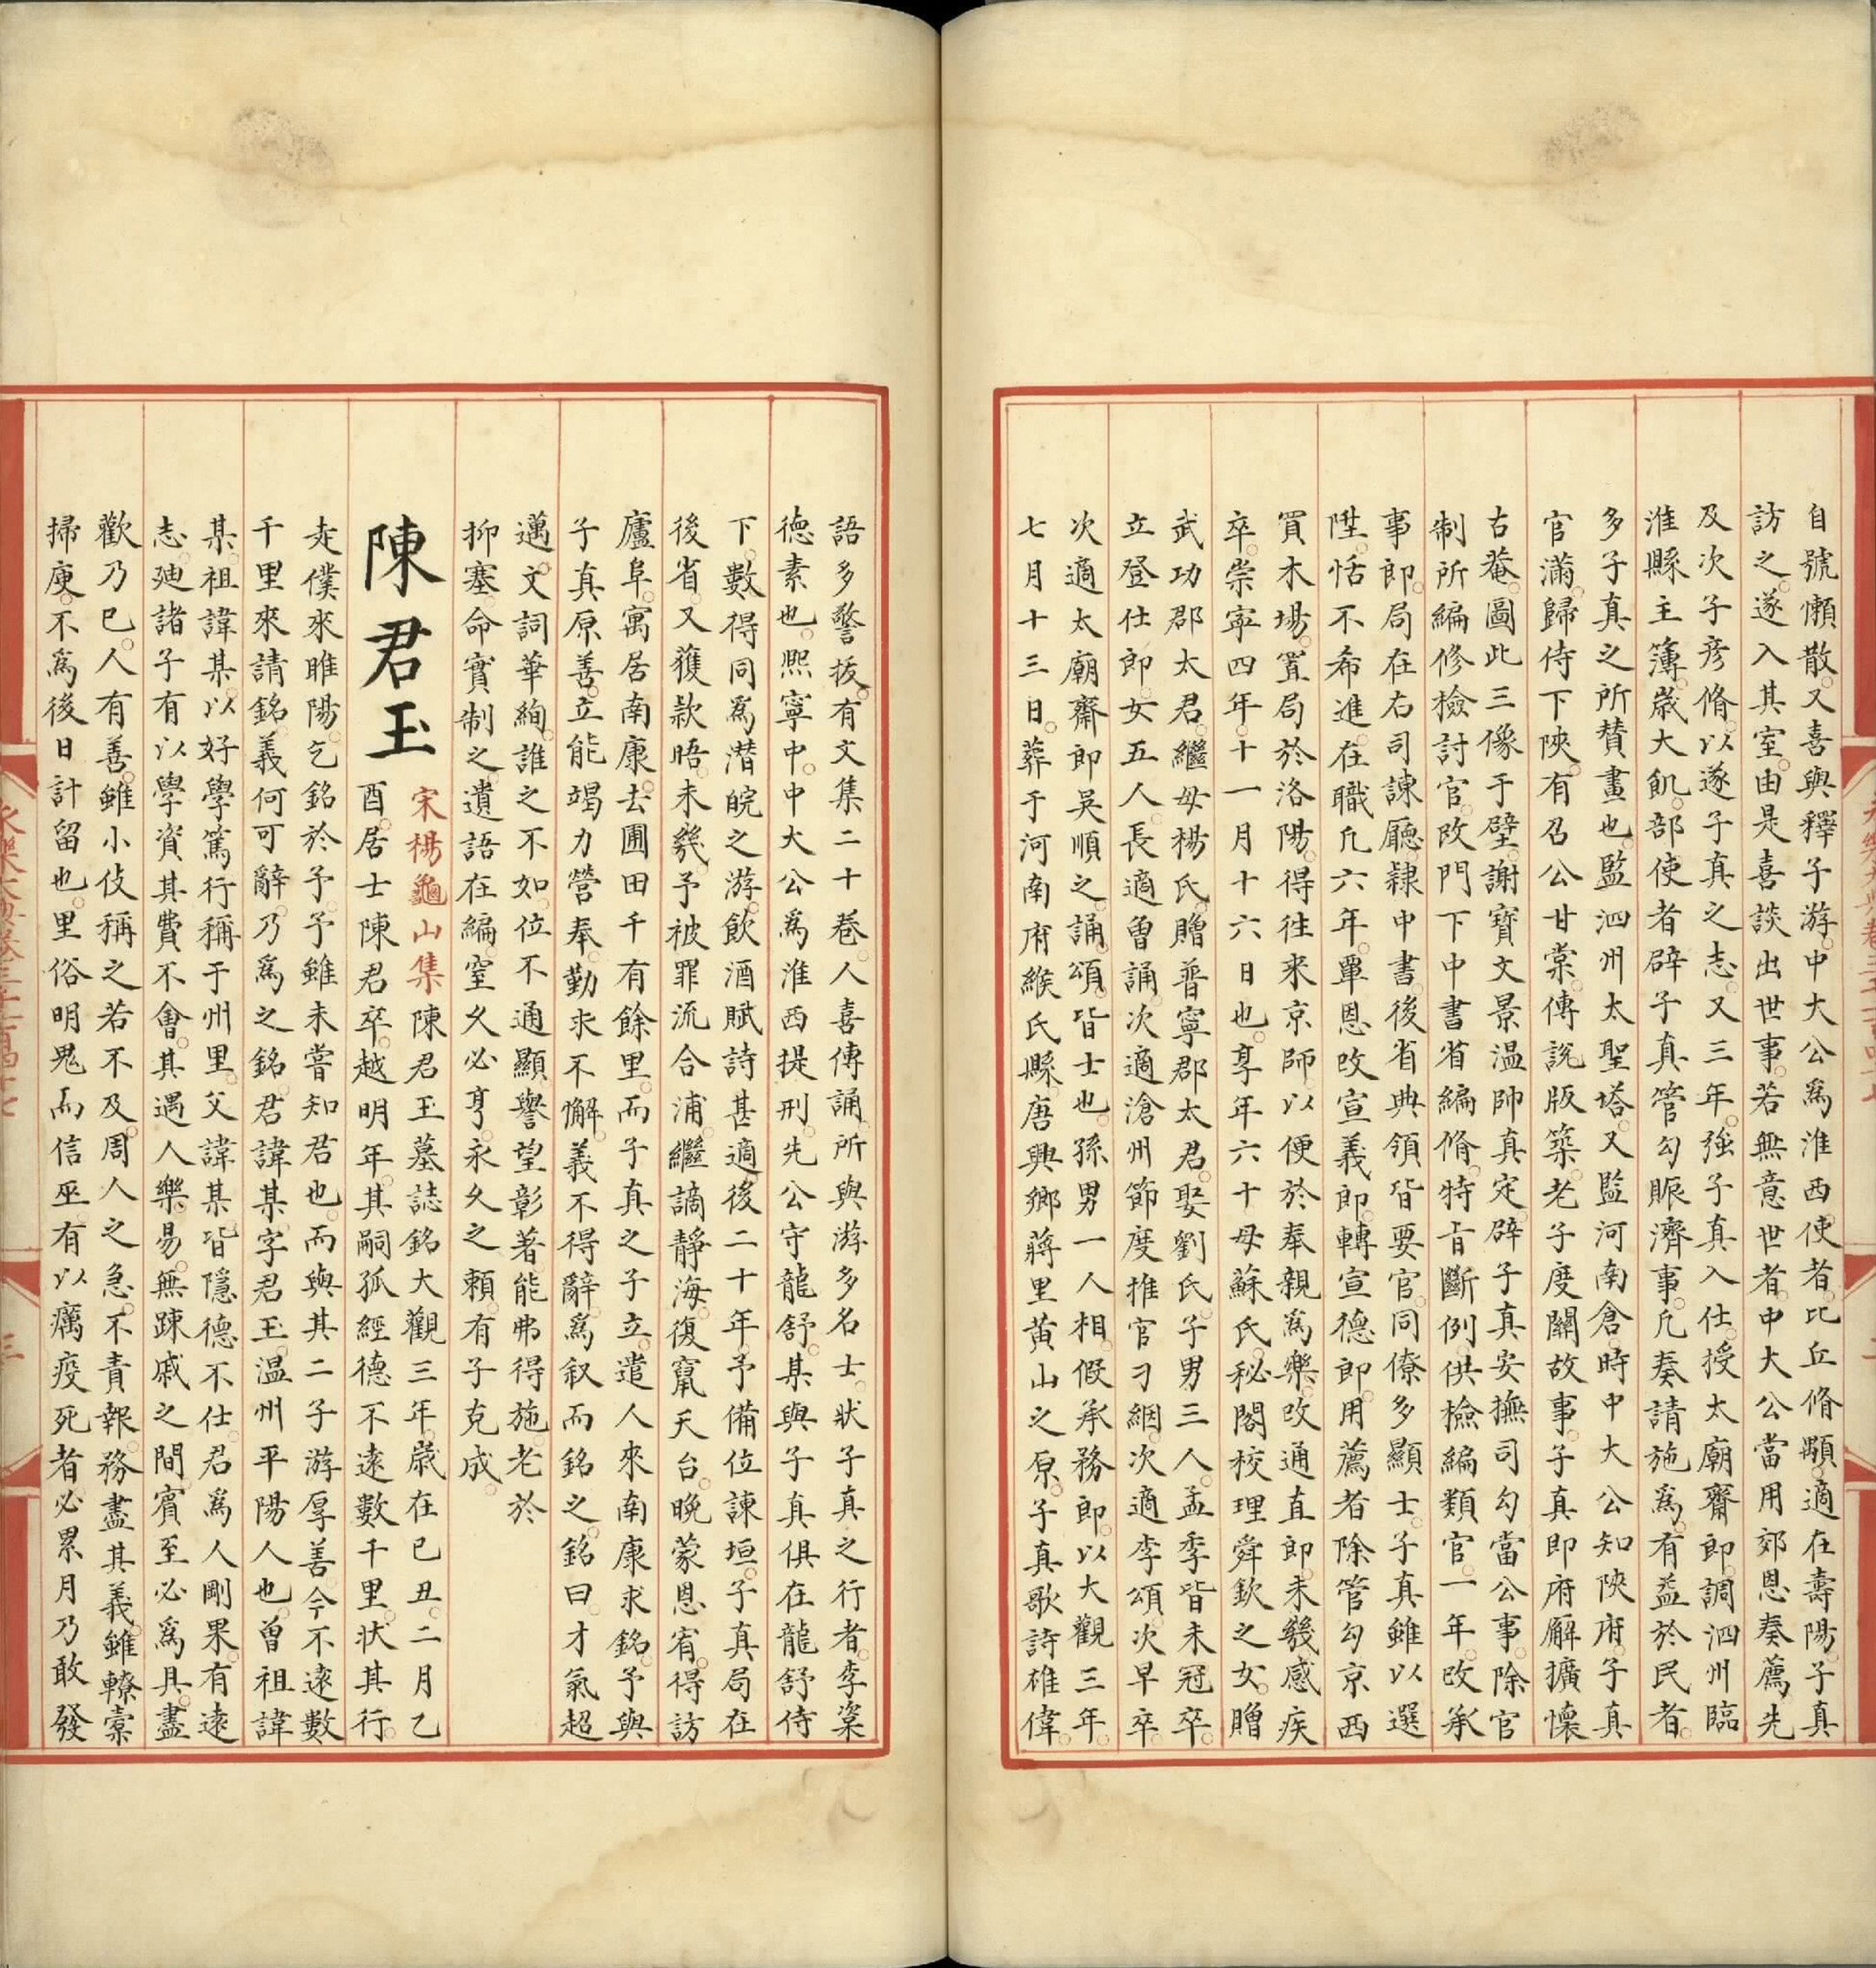 自號懶散又喜與釋子游中大公爲淮西使者比丘脩顒適在壽陽子真
訪之遂入其室由是喜談出世事若無意世者中大公當用郊恩奏薦先
及次子彥脩以遂子真之志又三年強子真入仕授太廟齋郎調泗州臨
淮縣主簿歲大飢部使者辟子真管勾賑濟事凡奏請施爲有益於民者
多子真之所贊畫也監泗州太聖塔又監河南倉時中大公知陝府子真
官滿歸侍下陝有召公甘棠傳說版築老子度關故事子真即府廨擴懷
古菴圖此三像于壁謝寶文景溫帥真定辟子真安撫司勾當公事除官
制所編修檢討官改門下中書省編脩特旨斷例供檢編類官一年改承
事郎局在右司諫廳隸中書後省典領皆要官同僚多顯士子真雖以選
陞恬不希進在職凡六年覃恩改宣義郎轉宣德郎用薦者除管勾京西
買木場置局於洛陽得往來京師以便於奉親爲樂改通直郎未幾感疾
卒崇寧四年十一月十六日也享年六十母蘇氏秘閣校理舜欽之女贈
武功郡太君繼母楊氏贈普寧郡太君娶劉氏子男三人孟季皆未冠卒
立登仕郎女五人長適魯誦次適滄州節度推官刁絪次適李頌次早卒
次適太廟齋郎吳順之誦頌皆士也孫男一人相假承務郎以大觀三年
七月十三日葬于河南府緱氏縣唐興鄉蔣里黃山之原子真歌詩雄偉
語多警拔有文集二十卷人喜傳誦所與游多名士狀子真之行者李粢
德素也熙寧中中大公爲淮西提刑先公守龍舒某與子真俱在龍舒侍
下數得同爲潛皖之游飲酒賦詩甚適後二十年予備位諫垣子真局在
後省又獲款晤未幾予被罪流合浦繼謫靜海復竄天台晚蒙恩宥得訪
廬阜寓居南康去圃田千有餘里而子真之子立遣人來南康求銘予與
子真原善立能竭力營奉勤求不懈義不得辭爲叙而銘之銘曰才氣超
邁文詞華絢誰之不如位不通顯譽望彰著能弗得施老於
抑塞命實制之遺語在編窒久必亨永久之賴有子克成
陳君玉
宋楊龜山集陳君玉墓誌銘大觀三年歲在巳丑二月乙
酉居士陳君卒越明年其嗣孤經德不遠數千里狀其行
走僕來睢陽乞銘於予予雖未嘗知君也而與其二子游厚善今不遠數
千里來請銘義何可辭乃爲之銘君諱某字君玉溫州平陽人也曾祖諱
某祖諱某以好學篤行稱于州里父諱某皆隱德不仕君爲人剛果有遠
志廸諸子有以學資其費不會其遇人樂易無踈戚之間賓至必爲具盡
歡乃巳人有善雖小伎稱之若不及周人之急不責報務盡其義雖轑橐
掃庾不爲後日計留也里俗明鬼而信巫有以癘疫死者必累月乃敢發